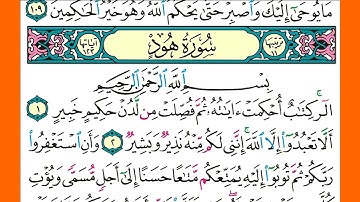 مَا يُوحَىٰٓ إِلَيْكَ وَٱصْبِرْ حَتَّىٰ يَحْكُمَ ٱللَّهُ وَهُوَ خَيْرُ ٱلْحَٰكِمِينَ ١٠٩
ترتيبها ١١ سُورَةُ هُودٍ آياتها ١٢٣
بِسْمِ ٱللَّهِ ٱلرَّحْمَٰنِ ٱلرَّحِيمِ
الٓر كِتَٰبٌ أُحْكِمَتْ ءَايَٰتُهُۥ ثُمَّ فُصِّلَتْ مِن لَّدُنْ حَكِيمٍ خَبِيرٍ ١
أَلَّا تَعْبُدُوٓا۟ إِلَّا ٱللَّهَ إِنَّنِى لَكُم مِّنْهُ نَذِيرٌ وَبَشِيرٌ ٢ وَأَنِ ٱسْتَغْفِرُوا۟
رَبَّكُمْ ثُمَّ تُوبُوٓا۟ إِلَيْهِ يُمَتِّعْكُم مَّتَٰعًا حَسَنًا إِلَىٰٓ أَجَلٍ مُّسَمًّى وَيُؤْتِ